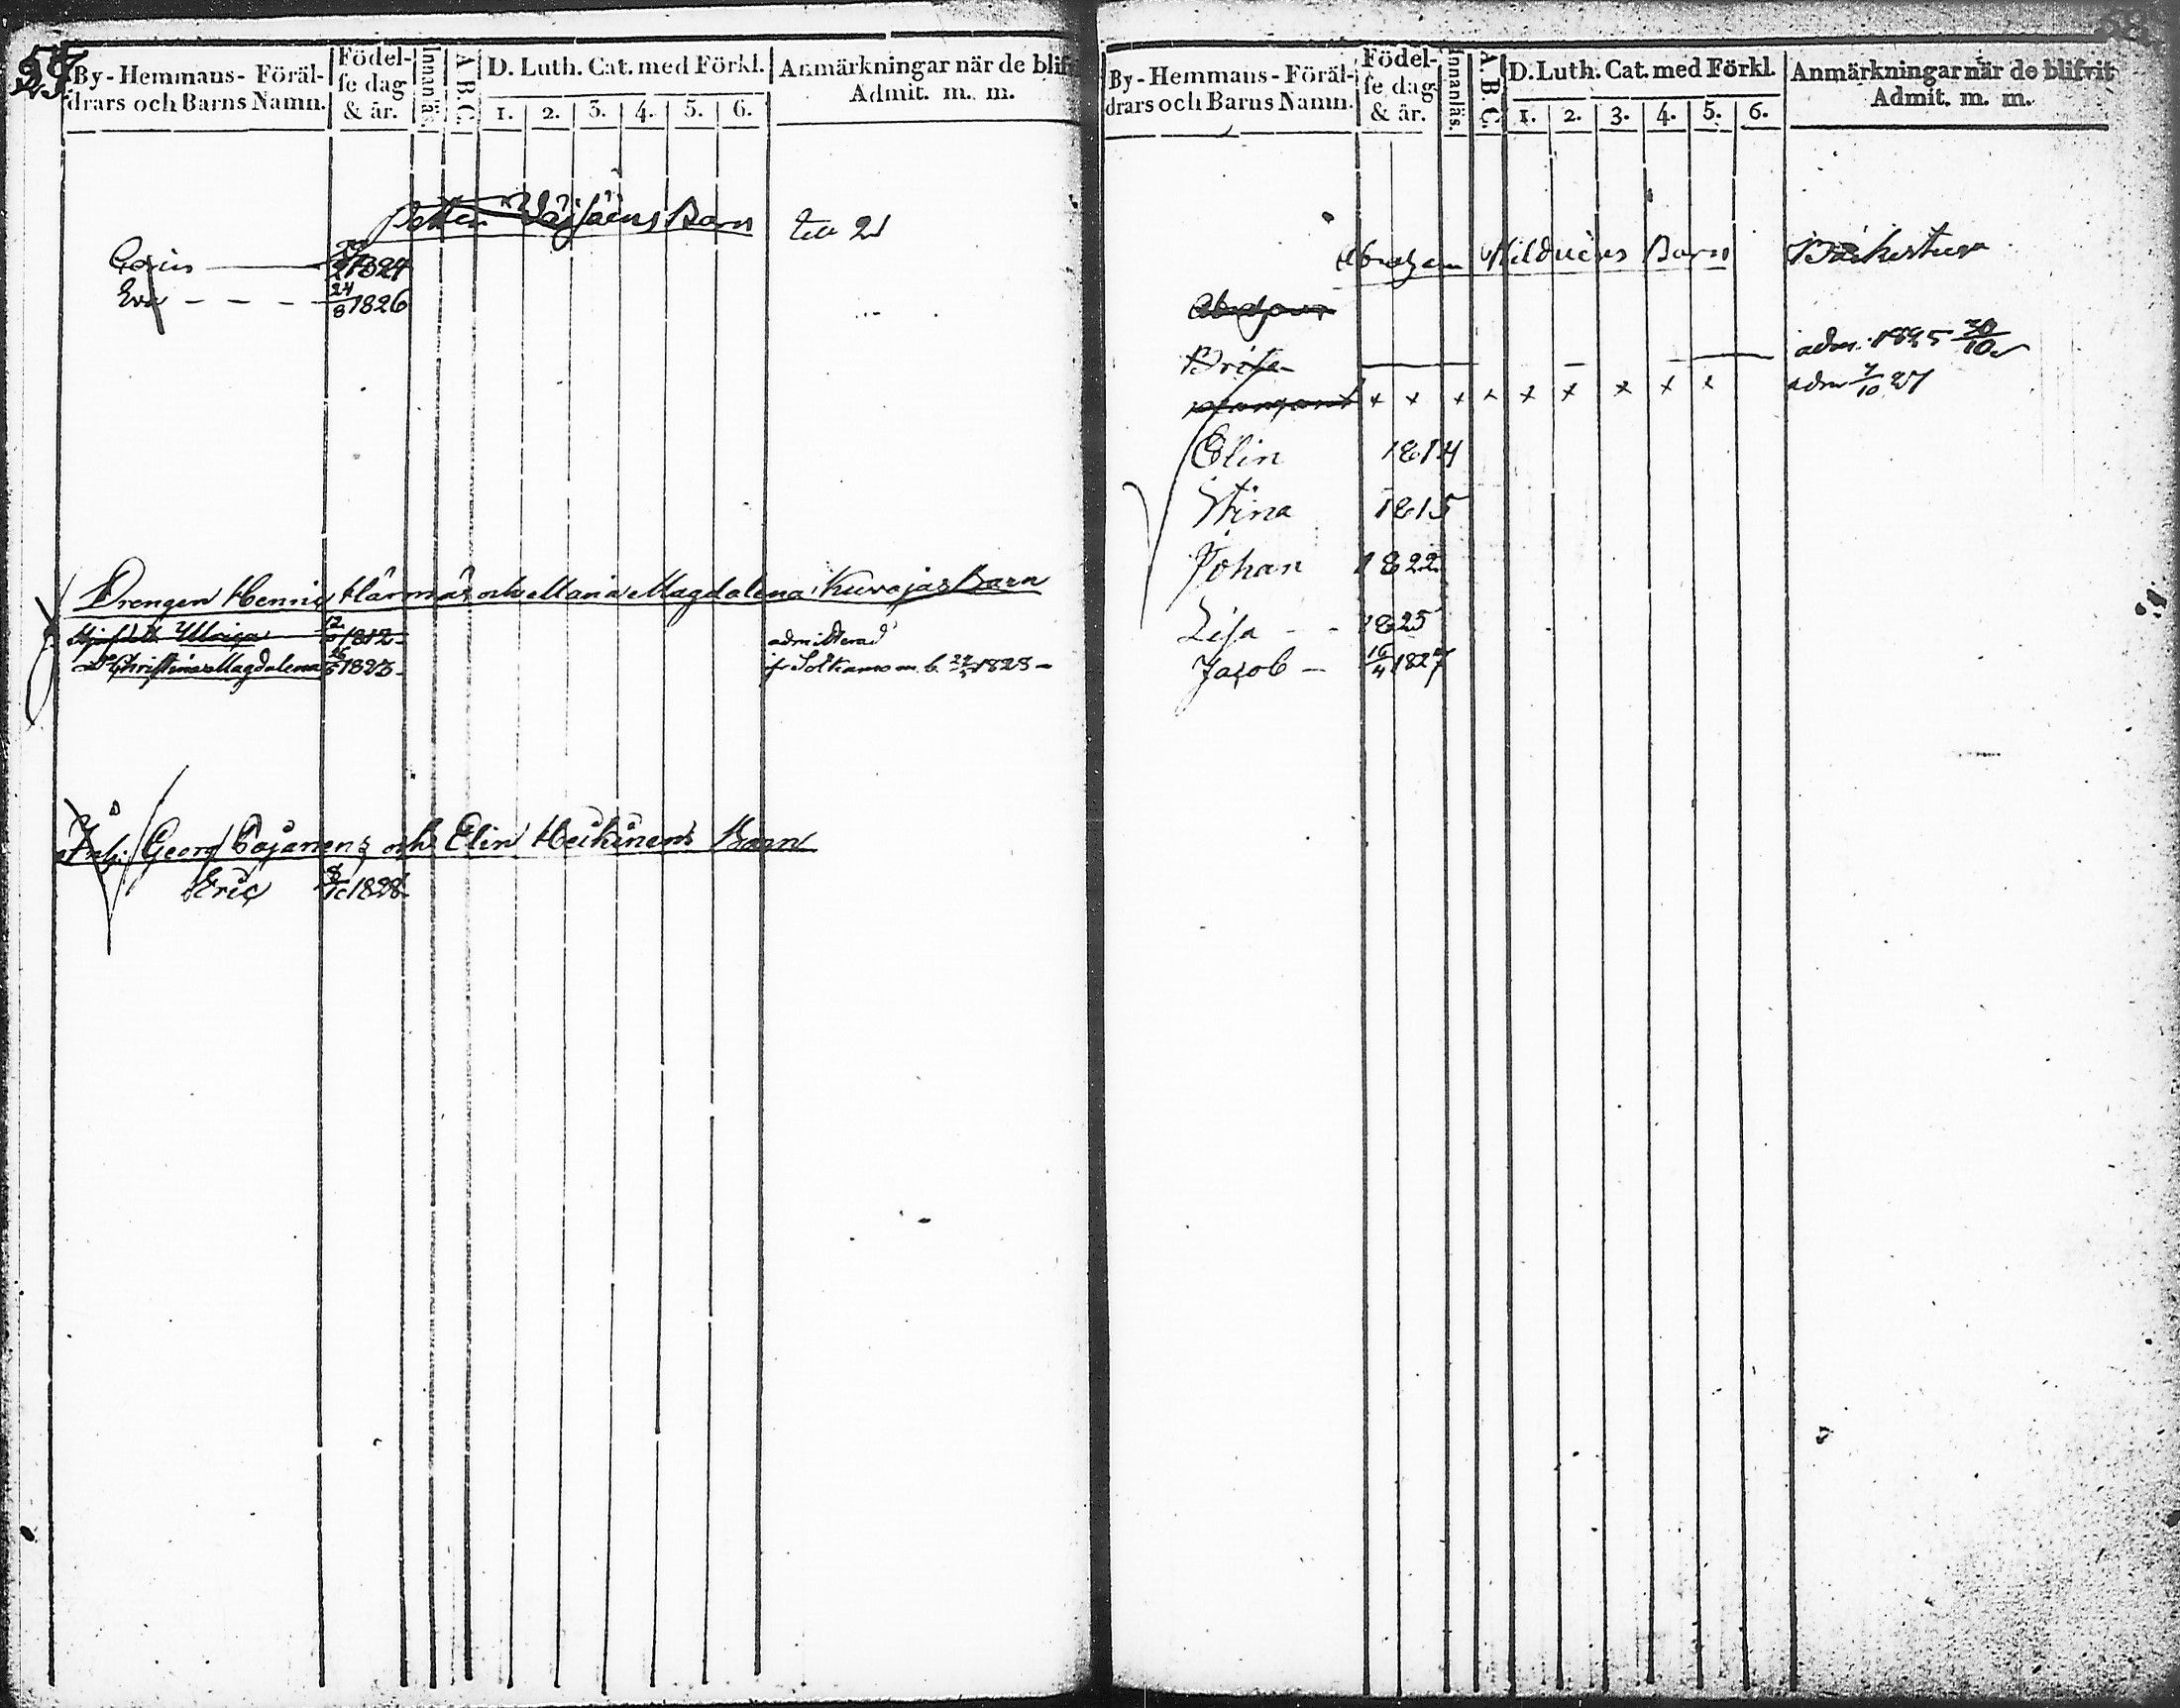 57
By-Hemmans-Föräl-
drars och Barns Namn.
Födel-
se dag
& år.
Innanläs.
A.B.C.
D. Luth. Cat. med Förkl.
1. 2. 3. 4. 5. 6.
Anmärkningar när de blif
Admit. m. m.
Petter Barn till 21
1824
Eva - - - 24/8 1826
Drengen Henric Härmäs och Maria Magdalena Kuvajas Barn
Ulrica 12/ 1812 admitterad
Christina Magdalena 1823 Sotkamo m. b. 1828
Inh: Georg Cajanens och Elin Heikinens Barn
Eric 1828
58
By-Hemmans-Föräl-
drars och Barns Namn.
Födel-
se dag
& år.
Innanläs.
A.B.C.
D. Luth. Cat. med Förkl.
1. 2. 3. 4. 5. 6.
Anmärkningar när de blifvit
Admit. m. m.
Abraham Barn
Brita adm. 1825 30/10
Margaret x x x x x x x x x adm 7/10 27
Elin 1814
Stina 1815
Johan 1822
Lisa - - 1825
Jacob - 16/4 1827